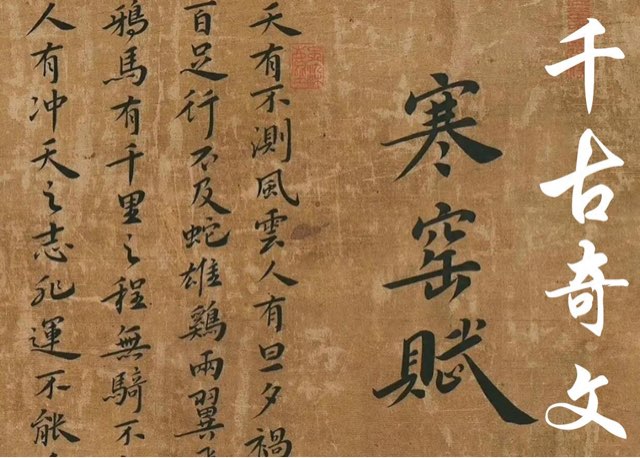 千古奇文
寒窑賦
天有不測風雲人有旦夕禍
百足行不及蛇雄鷄兩翼
鴉馬有千里之程無騎不
人有冲天之志非運不能